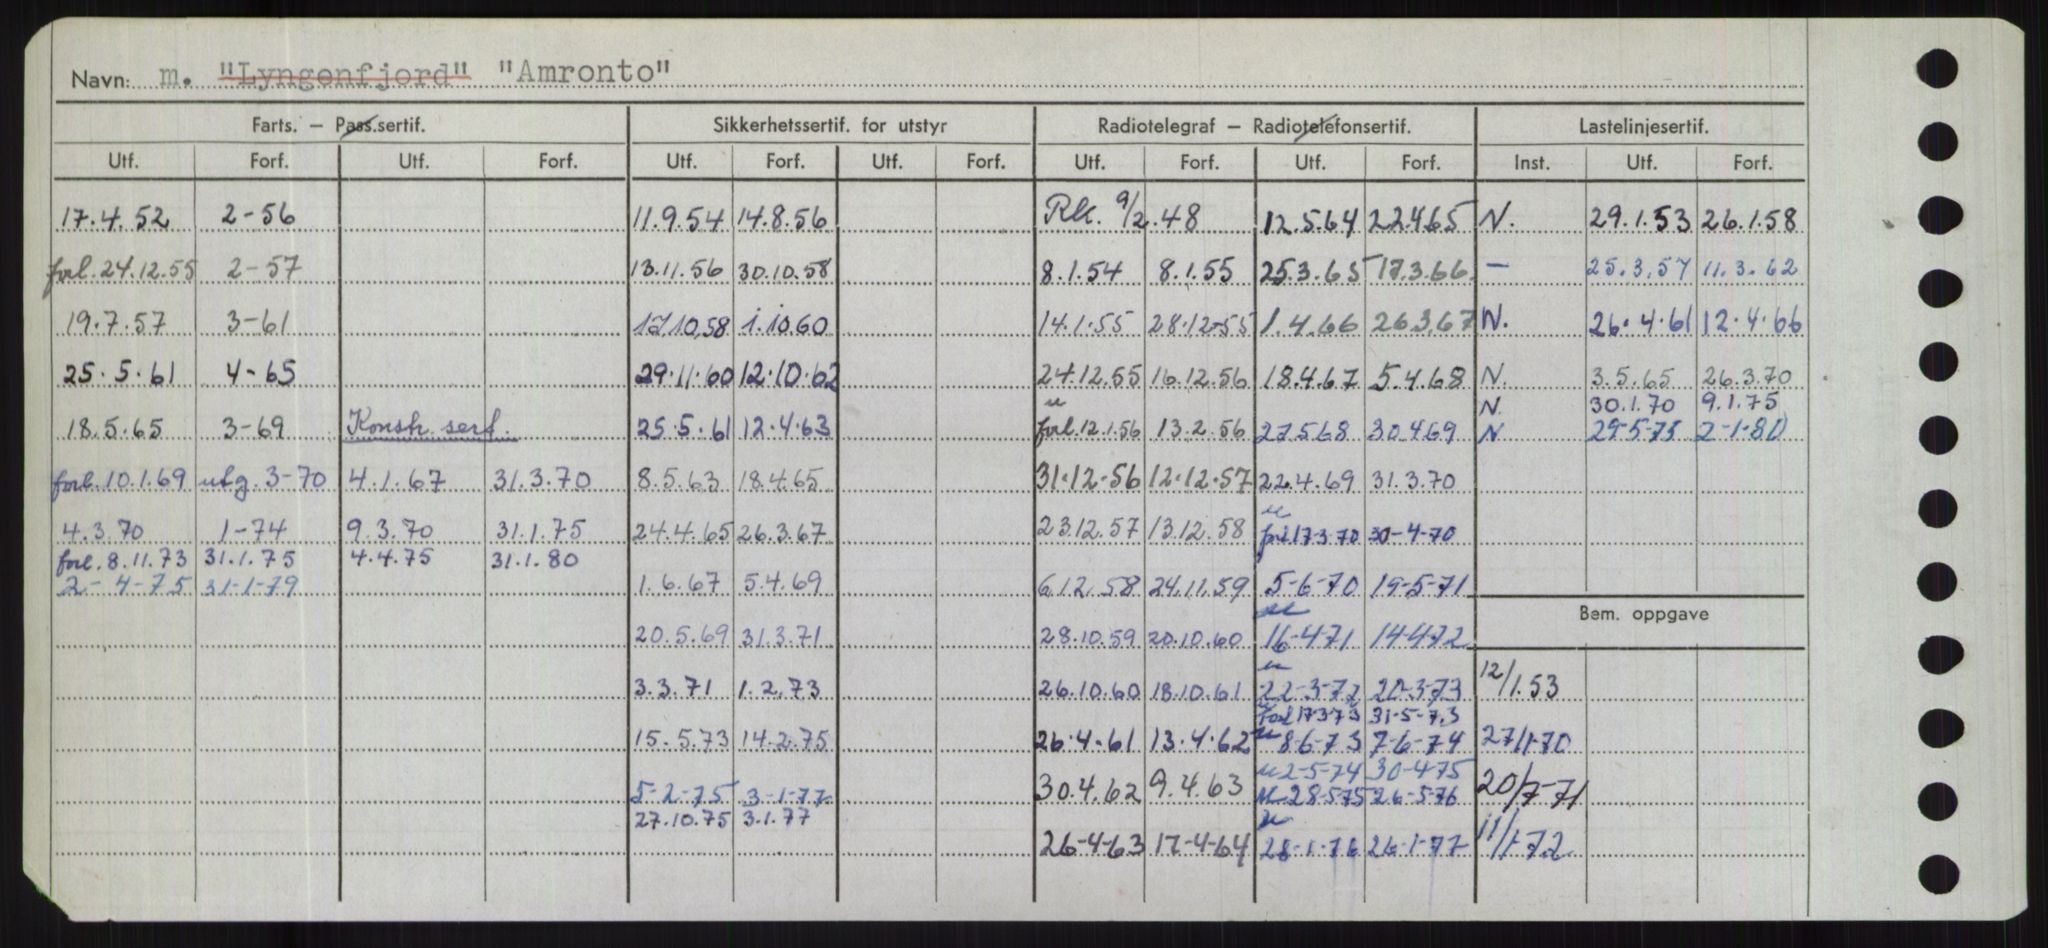 Navn: m. "Lyngenfjord" "Amronto"
Farts. — Pass.sertif. Sikkerhetssertif. for utstyr Radiotelegraf — Radiotelefonsertif. Lastelinjesertif.
Utf. Forf. Utf. Forf. Utf. Forf. Utf. Forf. Utf. Forf. Utf. Forf. Inst. Utf. Forf.
17.4.52 2-56 11.9.54 14.8.56 Rk. 9/2.48 12.5.64 22.4.65 N. 29.1.53 26.1.58
forl. 24.12.55 2-57 13.11.56 30.10.58 8.1.54 8.1.55 25.3.65 17.3.66 — 25.3.57 11.3.62
19.7.57 3-61 17.10.58 1.10.60 14.1.55 28.12-55 1.4.66 26.3.67 N. 26.4.61 12.4.66
25.5.61 4-65 29.11.60 12.10.62 24.12.55 16.12.56 18.4.67 5.4.68 N. 3.5.65 26.3.70
N. 30.1.70 9.1.75
18.5.65 3-69 Konstr. sert. 25.5.61 12.4.63 " forl. 12.1.56 13.2.56 27.5.68 30.4.69 N 29-5-75 2-1-80
forl. 10.1.69 utg. 3-70 4.1.67 31.3.70 8.5.63 18.4.65 31.12.56 12.12.57 22.4.69 31.3.70
4.3.70 1-74 9.3.70 31.1.75 24.4.65 26.3.67 23.12.57 13.12.58 " forl 17-3-70 30-4-70
forl. 8.11.73 31.1.75 4.4.75 31.1.80
2-4-75 31-1-79 1.6.67 5.4.69 6.12.58 24.11.59 5-6-70 19-5-71
Bem. oppgave
20.5.69 31.3.71 28.10.59 20.10.60 " 16-4-71 14-4-72
3.3.71 1.2.73 26.10.60 18.10.61 " 22-3-72 20-3-73 12/1.53
" Forl 17-3-73 31-5-73
15.5.73 14.2.75 26.4.61 13.4.62 " 8-6-73 7-6-74 27/1-70
" 2-5-74 30-4-75
5-2-75 3-1-77 30.4.62 9.4.63 " 28-5-75 26-5-76 20/7-71
27.10.75 3.1.77
26-4-63 17-4-64 " 28-1-76 26-1-77 11/1-72